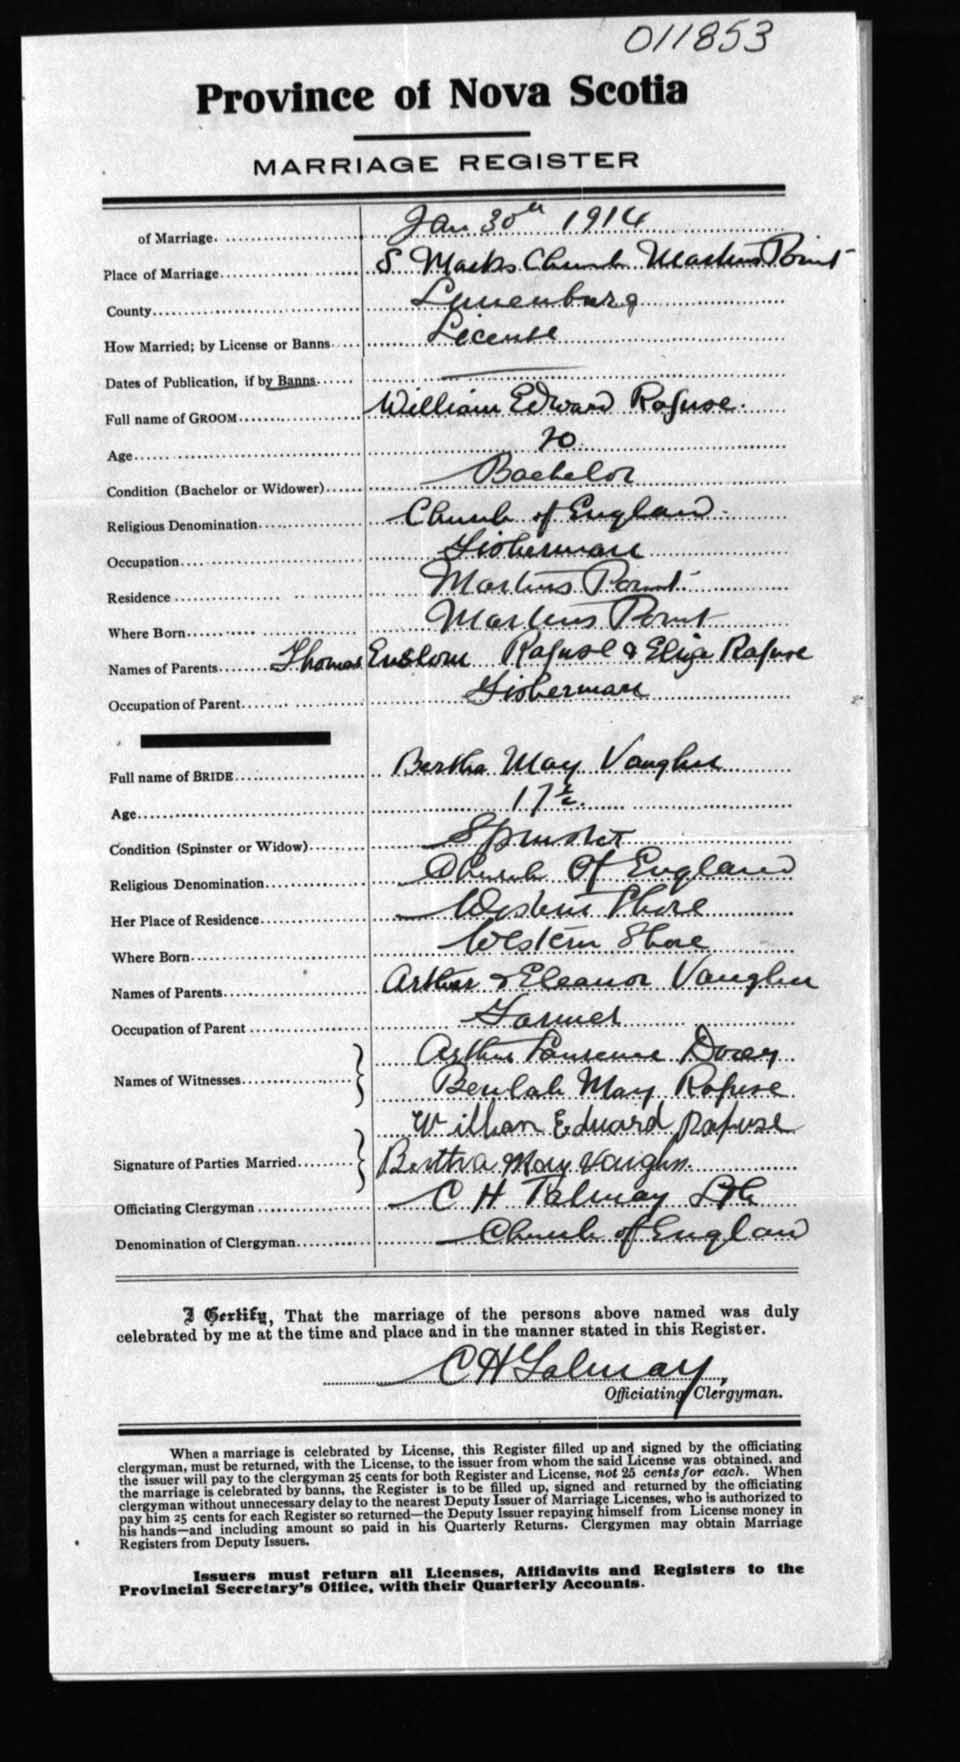 011853
Province of Nova Scotia
MARRIAGE REGISTER
of Marriage. Jan 30th 1914
Place of Marriage S Marks Church Martins Point
County Lunenburg
How Married; by License or Banns License
Dates of Publication, if by Banns
Full name of GROOM William Edward Rafuse.
Age 20
Condition (Bachelor or Widower) Bachelor
Religious Denomination Church of England
Occupation Fisherman
Residence Martins Point
Where Born Martins Point
Names of Parents Thomas Enslow Rafuse & Eliza Rafuse
Occupation of Parent Fisherman
Full name of BRIDE Bertha May Vaughn
Age 17½.
Condition (Spinster or Widow) Spinster
Religious Denomination Church of England
Her Place of Residence Western Shore
Where Born Western Shore
Names of Parents Arthur & Eleanor Vaughn
Occupation of Parent Farmer
Arthur Laurence
Names of Witnesses Beulah May Rafuse
William Edward Rafuse
Signature of Parties Married Bertha May Vaughn.
Officiating Clergyman C H Talmay
Denomination of Clergyman Church of England
I Certify, That the marriage of the persons above named was duly
celebrated by me at the time and place and in the manner stated in this Register.
C H Talmay
Officiating Clergyman.
When a marriage is celebrated by License, this Register filled up and signed by the officiating
clergyman, must be returned, with the License, to the issuer from whom the said License was obtained, and
the issuer will pay to the clergyman 25 cents for both Register and License, not 25 cents for each. When
the marriage is celebrated by banns, the Register is to be filled up, signed and returned by the officiating
clergyman without unnecessary delay to the nearest Deputy Issuer of Marriage Licenses, who is authorized to
pay him 25 cents for each Register so returned—the Deputy Issuer repaying himself from License money in
his hands—and including amount so paid in his Quarterly Returns. Clergymen may obtain Marriage
Registers from Deputy Issuers.
Issuers must return all Licenses, Affidavits and Registers to the
Provincial Secretary's Office, with their Quarterly Accounts.